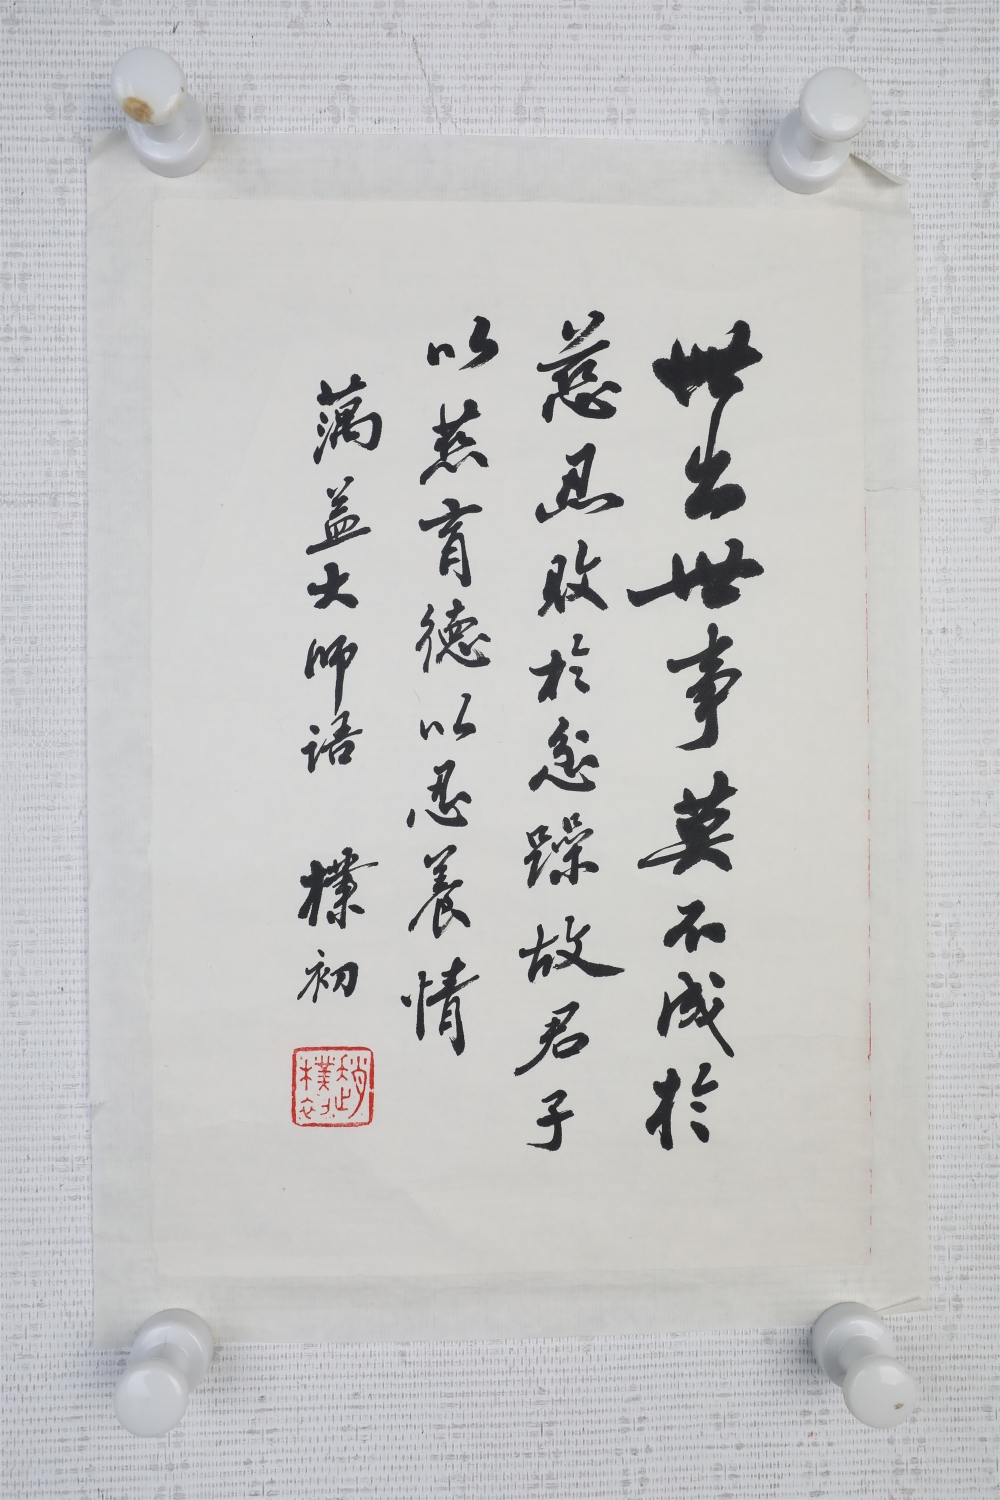 世出世事莫不成於
慈忍敗於忿躁故君子
以慈育德以忍養情
蕅益大师语 樸初
趙樸初